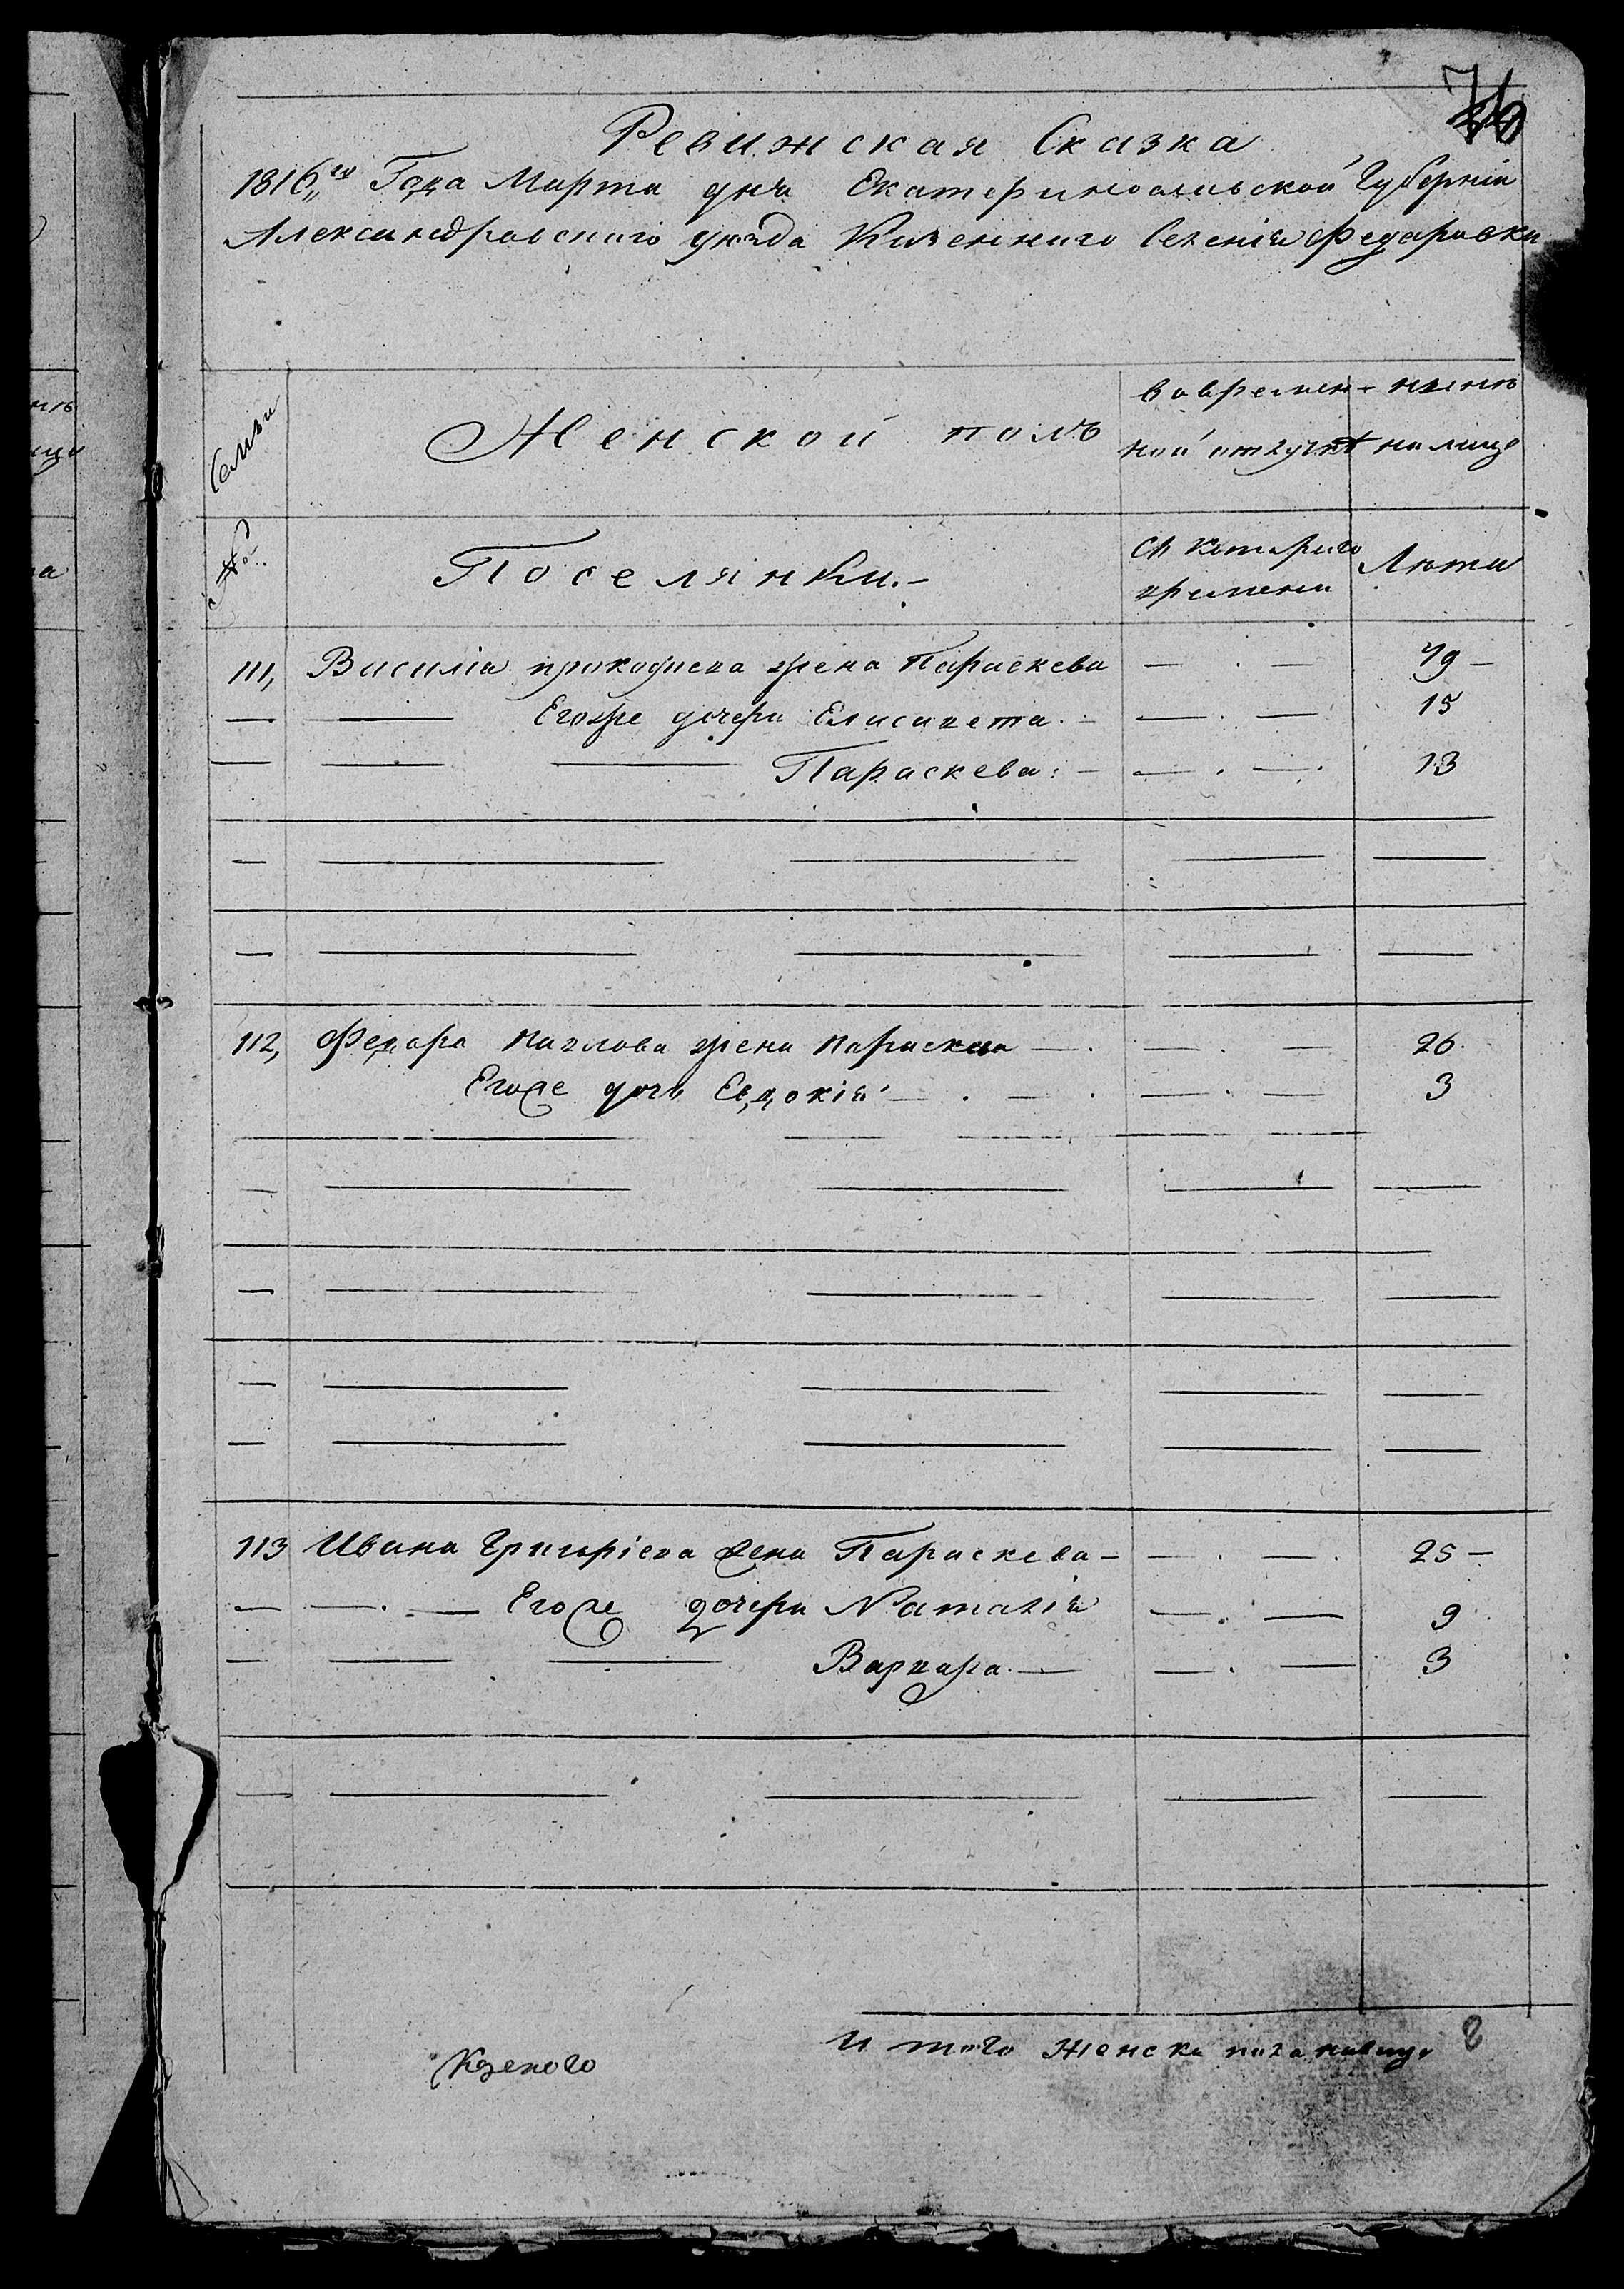 76
Ревижская Сказка
1816„го Года Марта дня Екатеринославской Губерніи
Александровского уѣзда Казенного Селенія Федаровки
Семьи
Женской полъ
вовремен- нынѣ
ной отлучкѣ налицо
№
Поселянки.-
Съ котораго Лѣта
времени
111, Василіа прокофиева жена Параскева — . — 49 -
— — Егоже дочери Елисавета. - — . — 15
— — — Параскева: - — . — . 13
112, Федара Павлова жена Параскева — . — . — 26.
Егоже дочь Евдокія — . — . — . — 3
113 Ивана Григоріева жена Параскева - — . — . 25 -
— — . — Егоже дочери Наталія — . — 9
— — — Варвара. — — . — 3
Итого женска пола налицо 8
Кденого